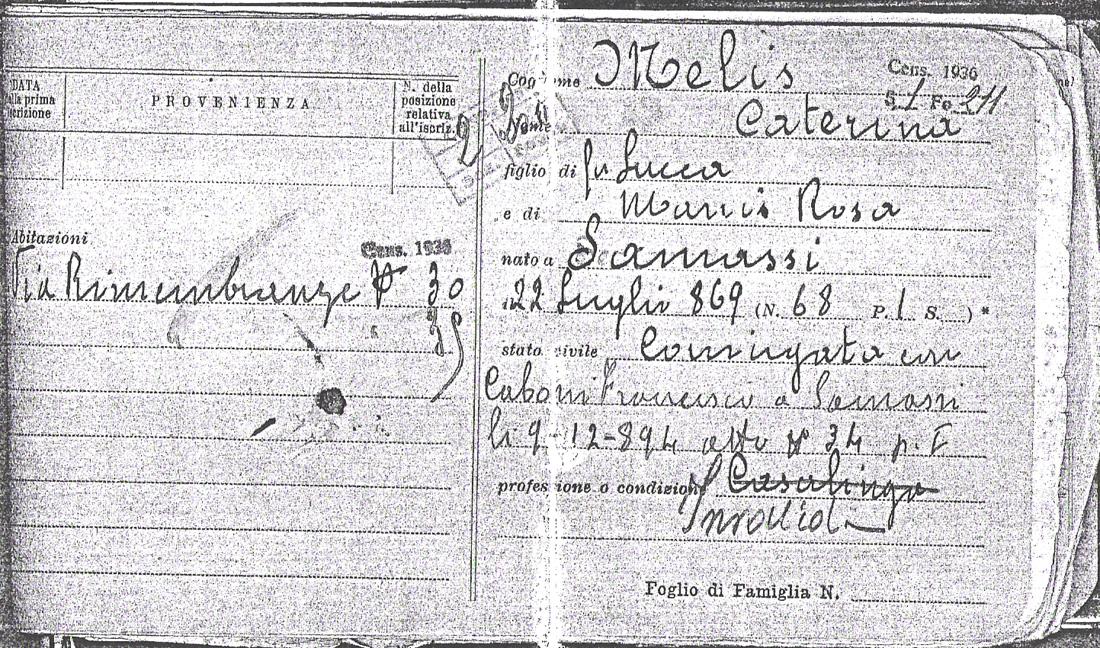 DATA
alla prima
iscrizione
PROVENIENZA
N. della
posizione
relativa
all'iscriz.
Abitazioni
Cens. 1936
Via Rimembranze N 30
35
Cognome Melis
Cens. 1936
S. 1 Fo 211
Nome Caterina
figlio di fu Lucca
e di Marcis Rosa
nato a Samassi
il 22 Luglio 869 (N. 68 P. 1 S. ) *
stato civile Coniugata con
Caboni Francesco a Samassi
li 9-12-894 atto N 34 p. I
professione o condizione Casalinga
Foglio di Famiglia N.